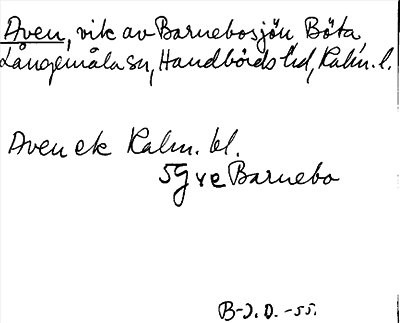 Aven, vik av Barnebosjön, Böta,
Långemåla sn, Handbörds hd, Kalm. l.
Aven ek Kalm. bl.
5g v e Barnebo
B-J. D. -55.